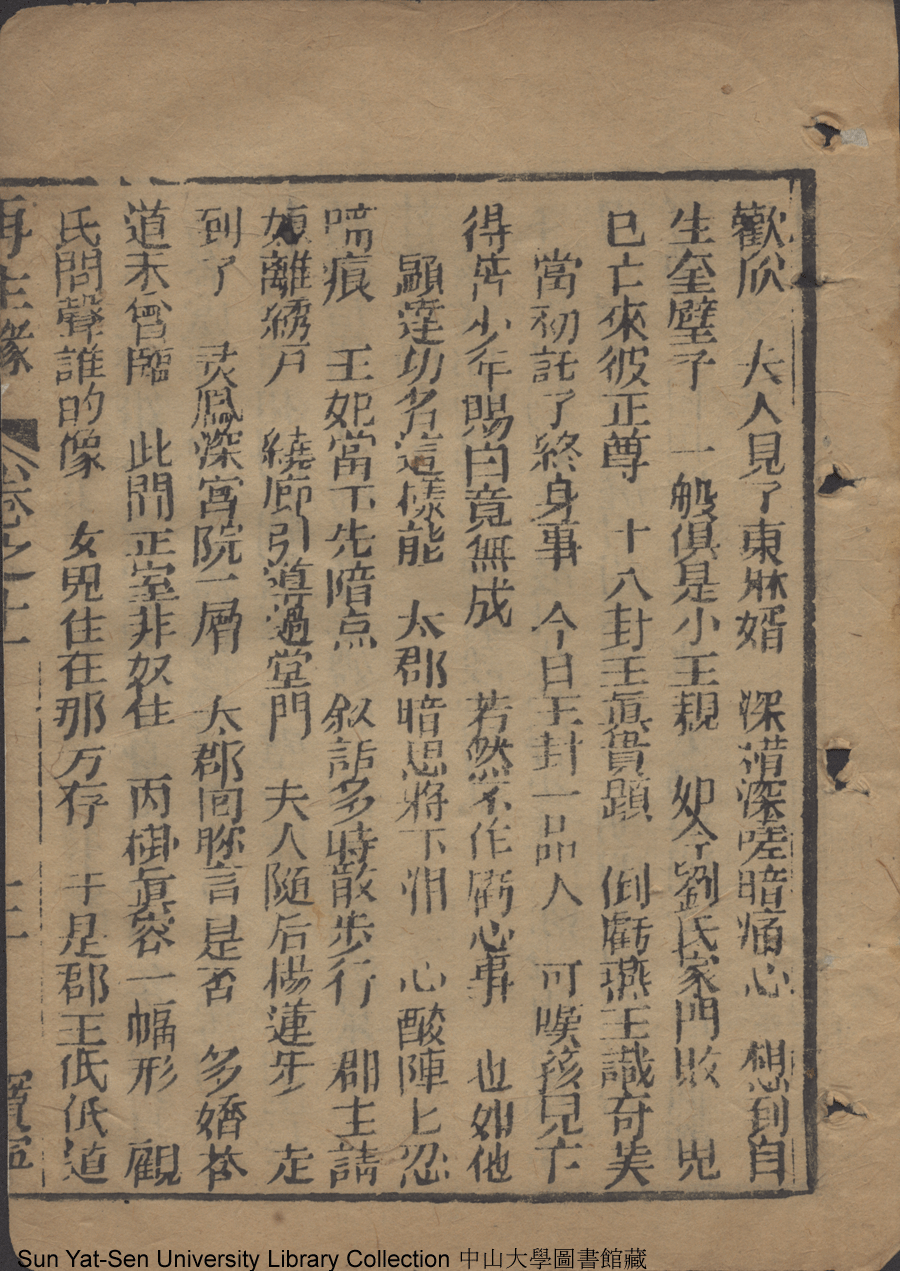 歡欣　夫人見了東床婿　深惜深嗟暗痛心　想到自
生奎壁子　一般俱是小王親　如今劉氏家門敗　兒
已亡來彼正尊　十八封王真貴顕　倒虧燕王識奇英
當初託了終身事　今日王封一品人　可嘆孩兒亡
得苦　少年賜白竟無成　若然不作虧心事　也如他
顯達功名這樣能　太郡暗思將下泪　心酸陣上忍
啼痕　王妃當下先暗点　叙話多時散步行　郡主請
娘離綉戶　繞廊引導過堂門　夫人随后楊蓮步　走
到了　灵鳳深宮院一層　太郡囘眸言是否　多嬌答
道未曾臨　此間正室非奴住　丙掛真容一幅形　觀
氏問聲誰的像　女児住在那方存　于是郡王低低道
再生緣　卷之十　十二　寶寧
Sun Yat-Sen University Library Collection 中山大學圖書館藏